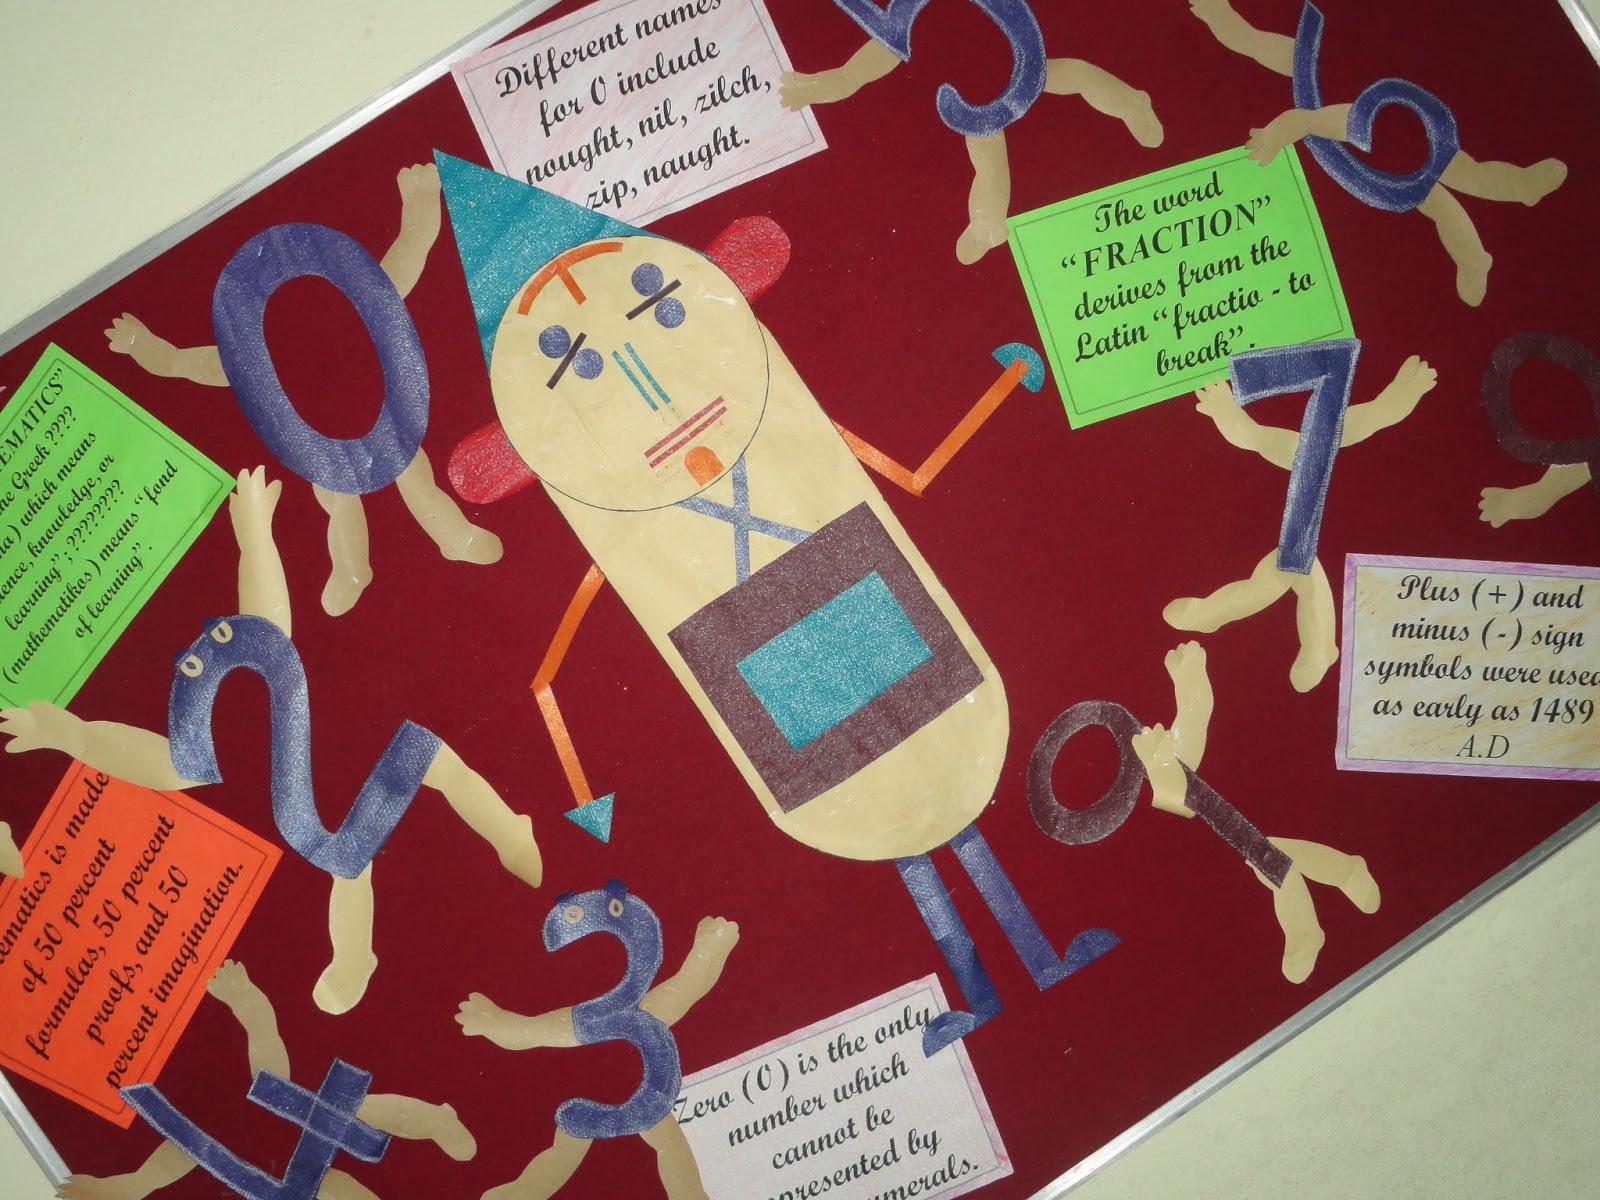 Different names
for 0 include
nought, nil, zilch,
zip, naught.
The word
“FRACTION”
derives from the
Latin “fractio - to
break”.
Greek ????
which means
knowledge, or
learning”; ????????
(mathematikos) means “fond
of learning”.
is made
of 50 percent
formulas, 50 percent
proofs, and 50
percent imagination.
Plus (+) and
minus (-) sign
symbols were used
as early as 1489
A.D
Zero (0) is the only
number which
cannot be
by
0
2
3
4
5
6
7
9
9